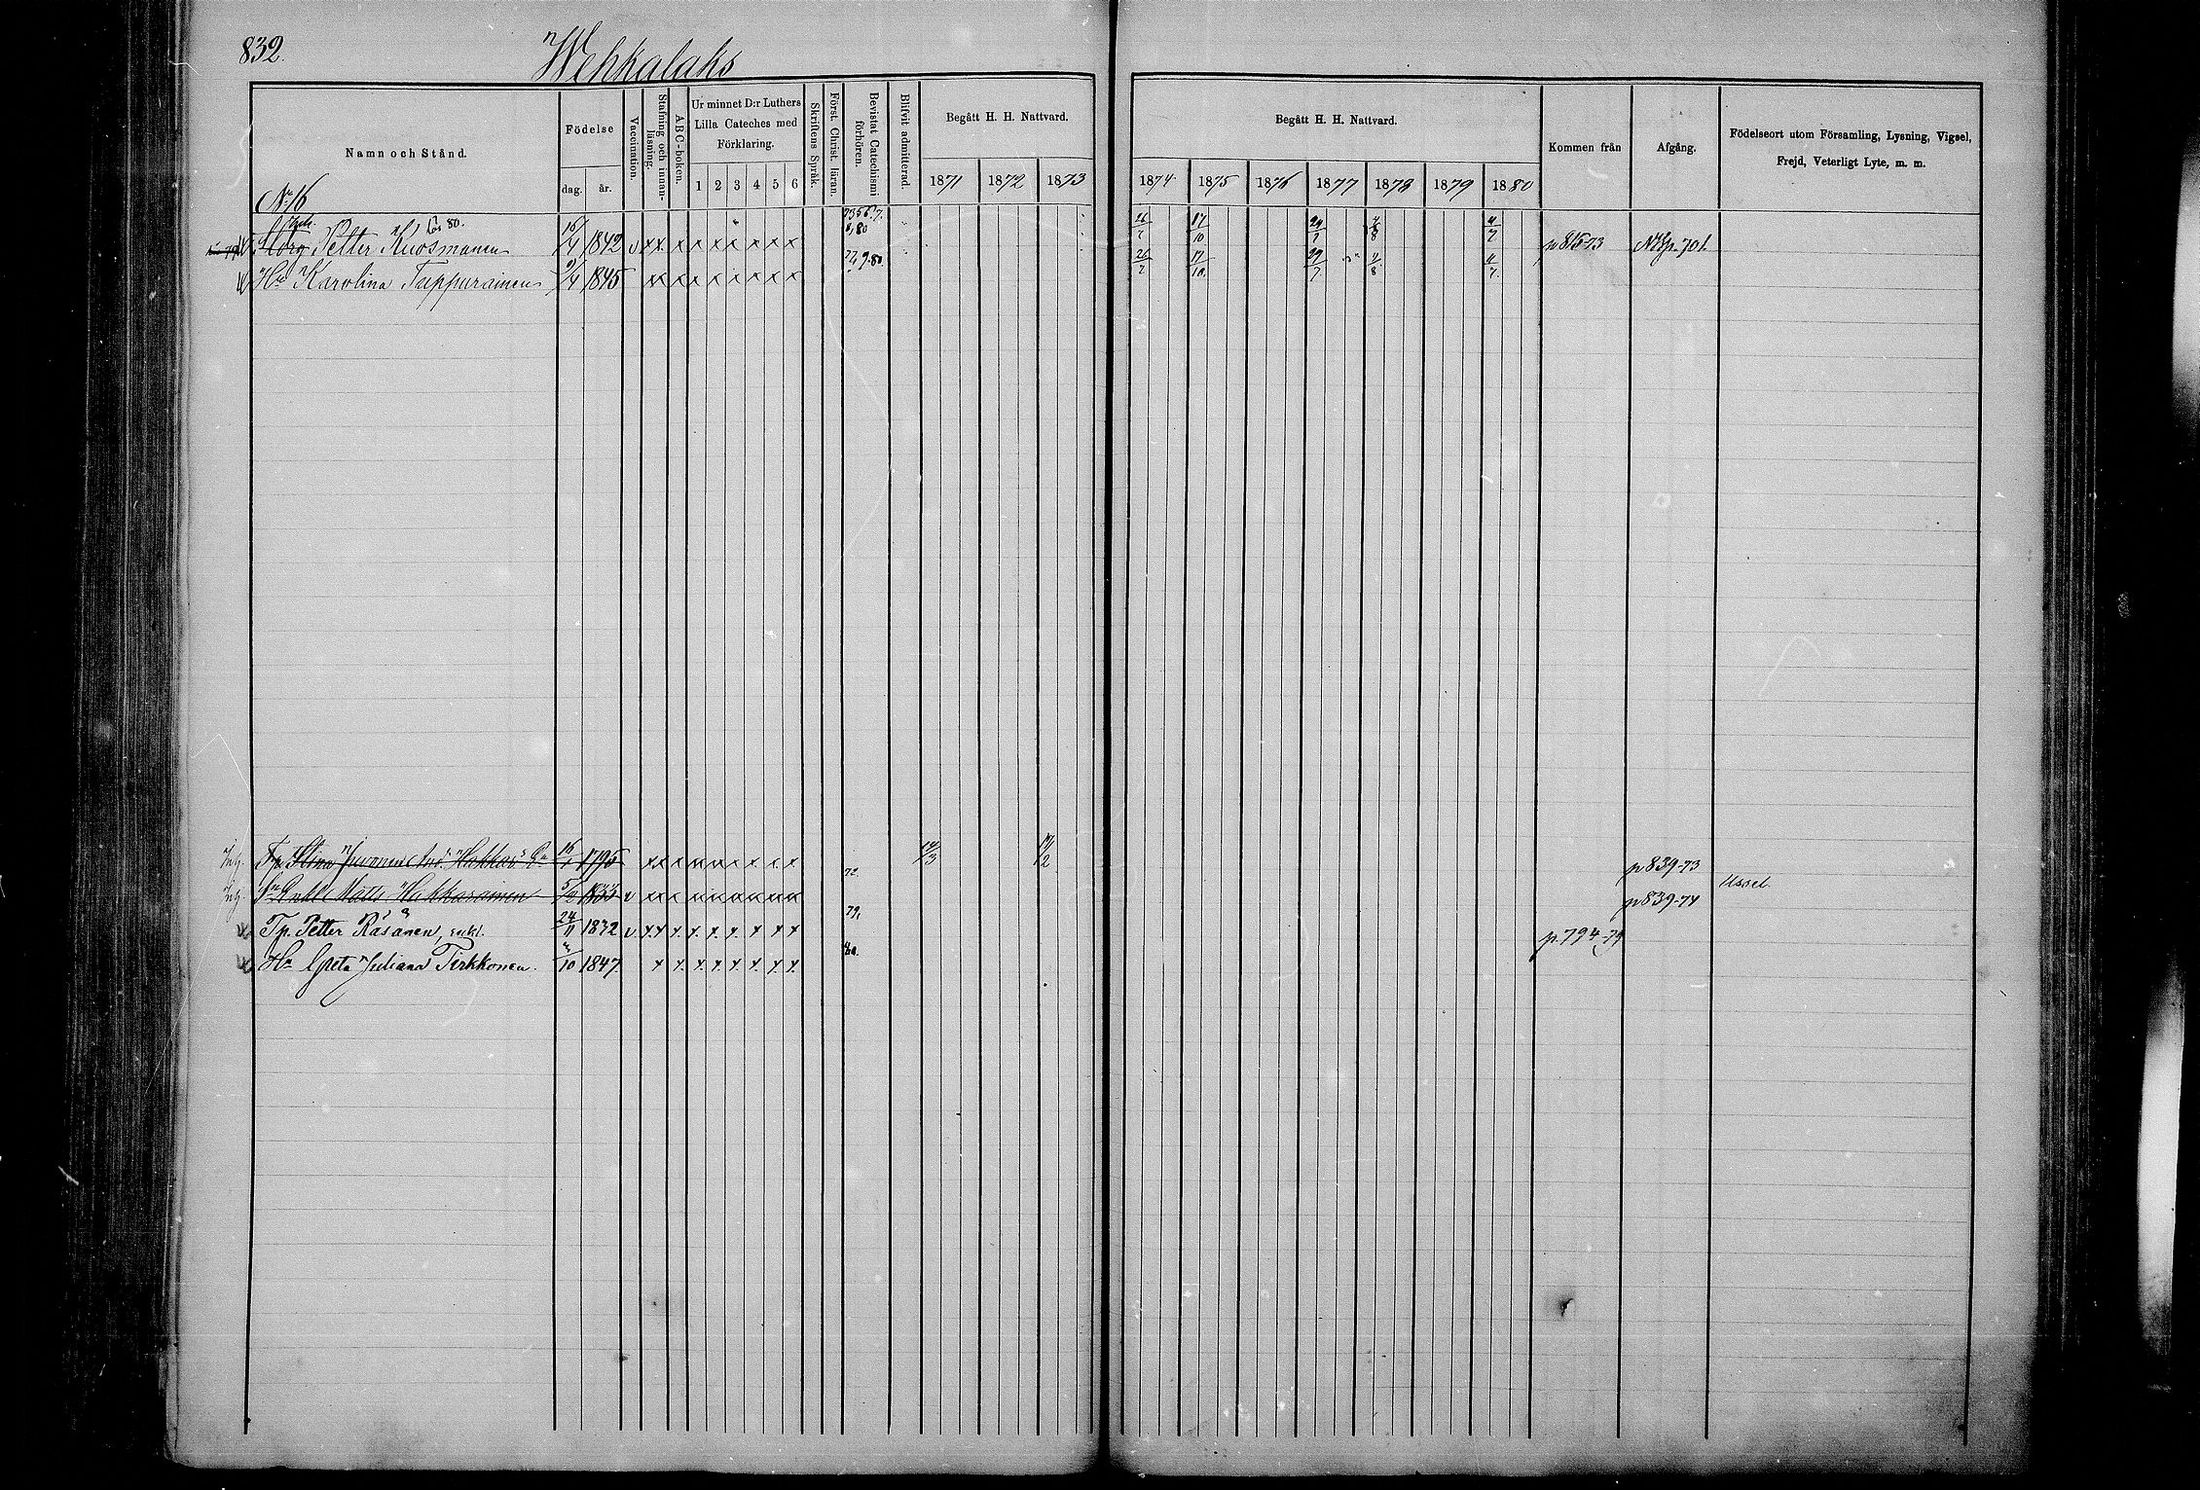 832.
Wehkalaks
Namn och Stånd.
Födelse
dag.
år.
Vaccination.
Stafning och innan-
läsning.
ABC-boken.
Ur minnet D:r Luthers
Lilla Cateches med
Förklaring.
1 2 3 4 5 6
Skriftens Språk.
Först. Christ. läran.
Bevistat Catechismi
förhören.
Blifvit admitterad.
Begått H. H. Nattvard.
1871 1872 1873
Begått H. H. Nattvard.
1874 1875 1876 1877 1878 1879 1880
Kommen från
Afgång.
Födelseort utom Församling, Lysning, Vigsel,
Frejd, Veterligt Lyte, m. m.
No 16
Petter Kuosmanen 16/4 1842 v xx x x x x x x x 26/7 17/10 29/7 4/8 4/7 p 815-73 p. 701.
Hu Karolina Tappurainen 9/4 1845 xx x x x x x x x 26/7 17/10 29/7 4/8 4/7
Stina Juvonen 16/1 1795 xx x x x x x x x 14/3 14/2 p 839-73
Enkl. Matts Hakkarainen 5/12 1833 v xx x x x x x x x 72. p 839-74 Ussel.
Tp. Petter Räsänen, enkl. 24/11 1832 v x x x x x x x x x 79, p. 794-79
Hu Greta Juliana Tirkkonen. /10 1847. x x x x x x x x 80.